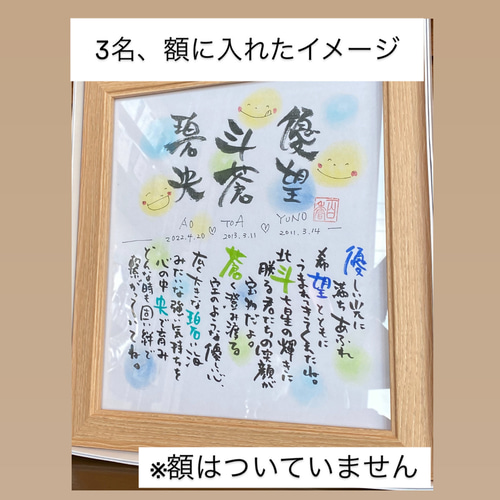 3名、額に入れたイメージ
優望
斗蒼
碧央
AO ♡ TOA ♡ YUNO
2022.4.20 2013.3.11 2011.3.14
優しい光に
満ちあふれ
希望とともに
うまれてきてくれたね。
北斗七星の輝きに
勝る君たちの笑顔が
宝物だよ。
蒼く澄み渡る
空のような優しい心、
広く大きな碧い海
みたいな強い気持ちを
心の中央で育み
どんな時も固い絆で
繋がっていてね。
※額はついていません